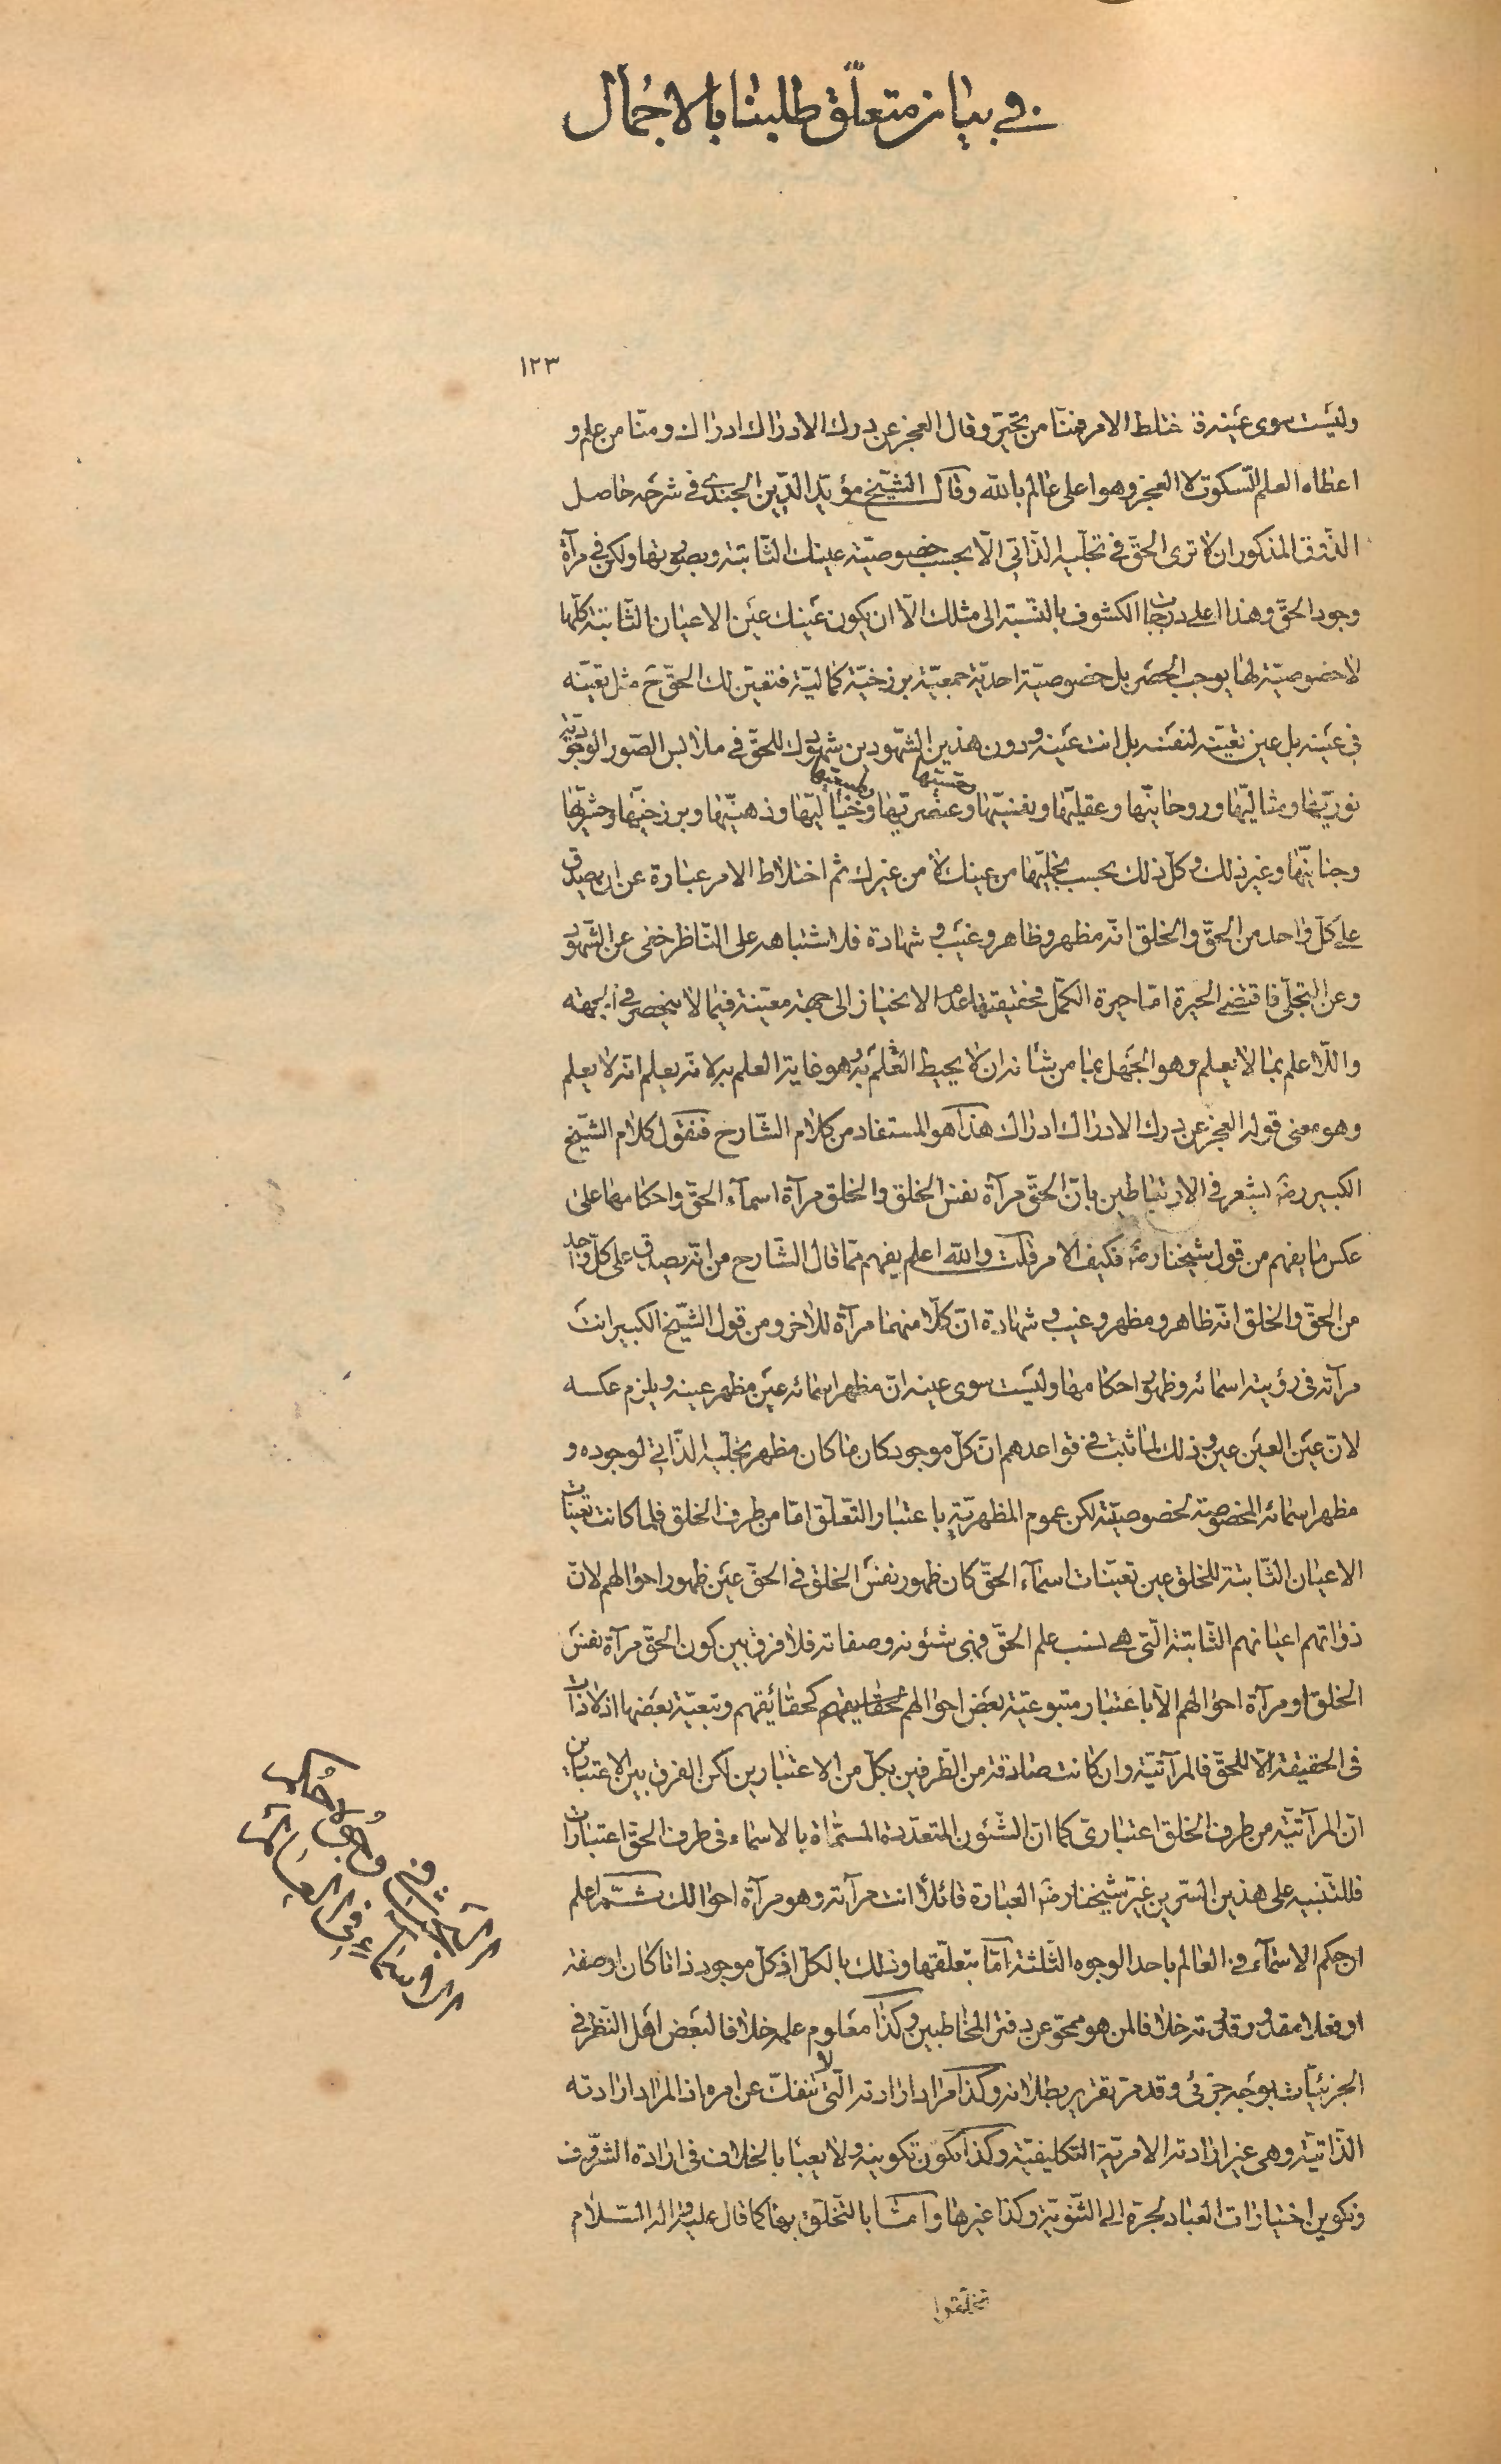 في بيان متعلّق طلبنا بالاجمال
١٢٣
وليست سوى عينه فاختلط الامر فمنّا من تحيّر وقال العجز عن درك الادراك ادراك ومنّا من علم و
اعطاه العلم السّكوت لا العجز وهو اعلى عالم بالله وقال الشّيخ مؤيّد الدّين الجندي في شرحه حاصل
الذّوق المذكور ان لا ترى الحقّ في تجلّيه الذّاتي الّا بحسب خصوصيّة عينك الثّابتة وبصورتها ولكن في مرآة
وجود الحقّ وهذا اعلى درجات الكشوف بالنّسبة الى مثلك الّا ان يكون عينك عين الاعيان الثّابتة كلّها
لا خصوصيّة لها يوجب الحصر بل خصوصيّة احديّة جمعيّة برزخيّة كماليّة فتعيّن لك الحقّ ح مثل تعيّنه
في عينه بل عين تعيّنه لنفسه بل انت عينه ودون هذين الشّهودين شهودك للحقّ في ملابس الصّور الوجوديّة
نوريّها ومثاليّها وروحانيّها وعقليّها ونفسيّها وعنصريّها وحسّيّها وطبيعيّها وخياليّها وذهنيّها وبرزخيّها وحشريّها
وجنانيّها وغير ذلك وكلّ ذلك بحسب تجلّيها من عينك لا من غيرك ثم اختلاط الامر عبارة عن ان يصدق
على كلّ واحد من الحقّ والخلق انّه مظهر وظاهر وغيب و شهادة فلاشتباهه على النّاظر خفى عن الشّهود
وعن التجلّى فاقتضى الحيرة امّا حيرة الكمّل فحقيقتها عدم الانحياز الى جهة معيّنة فيما لا ينحصر في الجهة
والله اعلم بما لا يعلم وهو الجهل بما من شانه ان لا يحيط العلم به وهو غاية العلم به لانّه يعلم انّه لا يعلم
وهو معنى قوله العجز عن درك الادراك ادراك هذا هو المستفاد من كلام الشّارح فنقول كلام الشّيخ
الكبير رضه يشعر في الارتباطين بانّ الحقّ مرآة نفس الخلق والخلق مرآة اسمآء الحقّ واحكامها على
عكس ما يفهم من قول شيخنا رضه فكيف الامر قلت والله اعلم يفهم ممّا قال الشّارح من انّه يصدق على كلّ واحد
من الحقّ والخلق انّه ظاهر ومظهر وغيب و شهادة انّ كلّا منهما مرآة للاخر ومن قول الشّيخ الكبير انت
مرآته في رؤيته اسمائه وظهور احكامها وليست سوى عينه انّ مظهر اسمائه عين مظهر عينه ويلزم عكسه
لانّ عين العين عين وذلك لما ثبت في قواعدهم انّ كلّ موجود كان ما كان مظهر تجلّيه الذّاتي لوجوده و
مظهر اسمائه المخصوصة لخصوصيّته لكن عموم المظهريّة باعتبار التّعلّق امّا من طرف الخلق فلما كانت تعيّنات
الاعيان الثّابتة للخلق عين تعيّنات اسمآء الحقّ كان ظهور نفس الخلق في الحقّ عين ظهور احوالهم لانّ
ذواتهم اعيانهم الثّابتة الّتى هي نسب علم الحقّ فهى شئونه وصفاته فلا فرق بين كون الحقّ مرآة نفس
الخلق او مرآة احوالهم الّا باعتبار متبوعيّة بعض احوالهم كحقايقهم كحقائقهم وتبعيّة بعضها اذ لا ذات
في الحقيقة الّا للحقّ فالمرآتيّة وان كانت صادقة من الطّرفين بكلّ من الاعتبارين لكن الفرق بين الاعتبارين
انّ المرآتيّة من طرف الخلق اعتبارىّ كما انّ الشّئون المتعدّدة المسمّاة بالاسماء في طرف الحقّ اعتبارات
فللتّنبيه على هذين السّرين غيّر شيخنا رضه العبارة قائلا انت مرآته وهو مرآة احوالك ثمّ اعلم
ان حكم الاسمآء في العالم باحد الوجوه الثّلثة امّا بتعلّقها وذلك بالكلّ اذ كلّ موجود ذاتا كان او صفة
او فعلا مقدور قدرته خلافا لمن هو ممحوّ عن دفتر المخاطبين وكذا معلوم علمه خلافا لبعض اهل النّظر في
الجزئيّات بوجه جزئى وقد مرّ تقرير بطلانه وكذا مراد ارادته الّتى لا تنفكّ عن امره اذ المراد ارادته
الذّاتيّة وهى غير ارادته الامريّة التكليفيّة وكذا مكوّن تكوينه ولا يعبا بالخلاف في ارادة الشّرور
وتكوين اختيارات العباد لجرّه الى الثّنويّة وكذا غيرها وامّا بالتّخلّق بها كما قال عليه واله السّلام
تخلّقوا
الثلاث في وجوه احكام
الاسماء في العالم